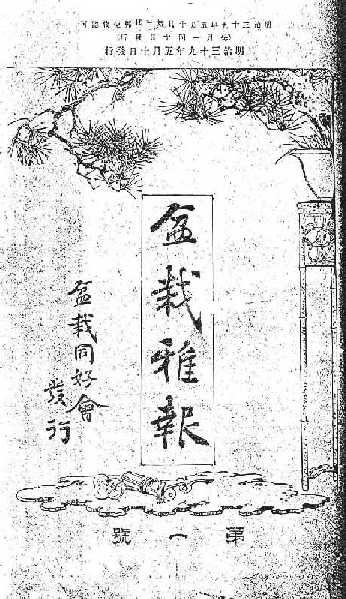 明治三十九年五月
第三種郵便物認可
(每月一回十日發行)
明治三十九年五月十日發行
盆栽雅報
盆栽同好會
發行
第一號